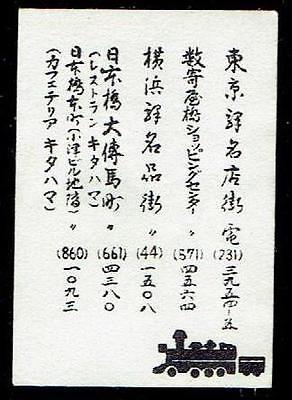 東京驛名店街 電(231)三九五四~五
数寄屋橋ショッピングセンター 〃(571)四五六四
横浜驛名品街 〃(44)一五〇八
日本橋大傳馬町 〃(661)四三八〇
(レストラン キタハマ)
日本橋本町(小津ビル地階)〃(860)一〇九三
(カフェテリア キタハマ)